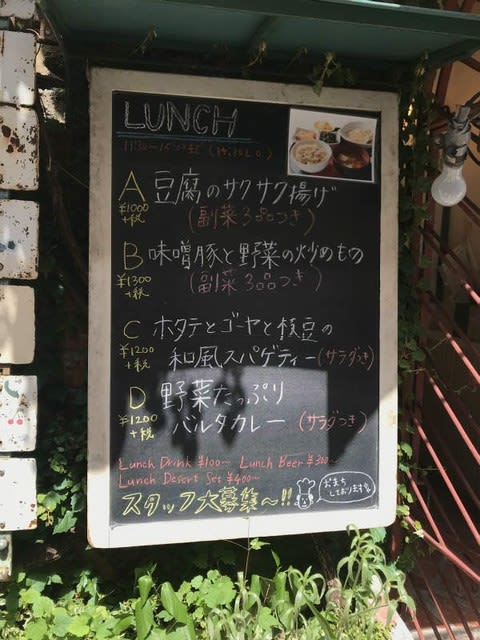 LUNCH
11:30～15:00 (14:30 L.O.)
A 豆腐のサクサク揚げ
¥1000
+税
(副菜3品つき)
B 味噌豚と野菜の炒めもの
¥1300
+税
(副菜3品つき)
C ホタテとゴーヤと枝豆の
¥1200
+税
和風スパゲティー(サラダつき)
D 野菜たっぷり
¥1200
+税
バルダカレー (サラダつき)
Lunch Drink ¥100～ Lunch Beer ¥300～
Lunch Desert Set ¥400～
スタッフ大募集～!!
おまち
しております